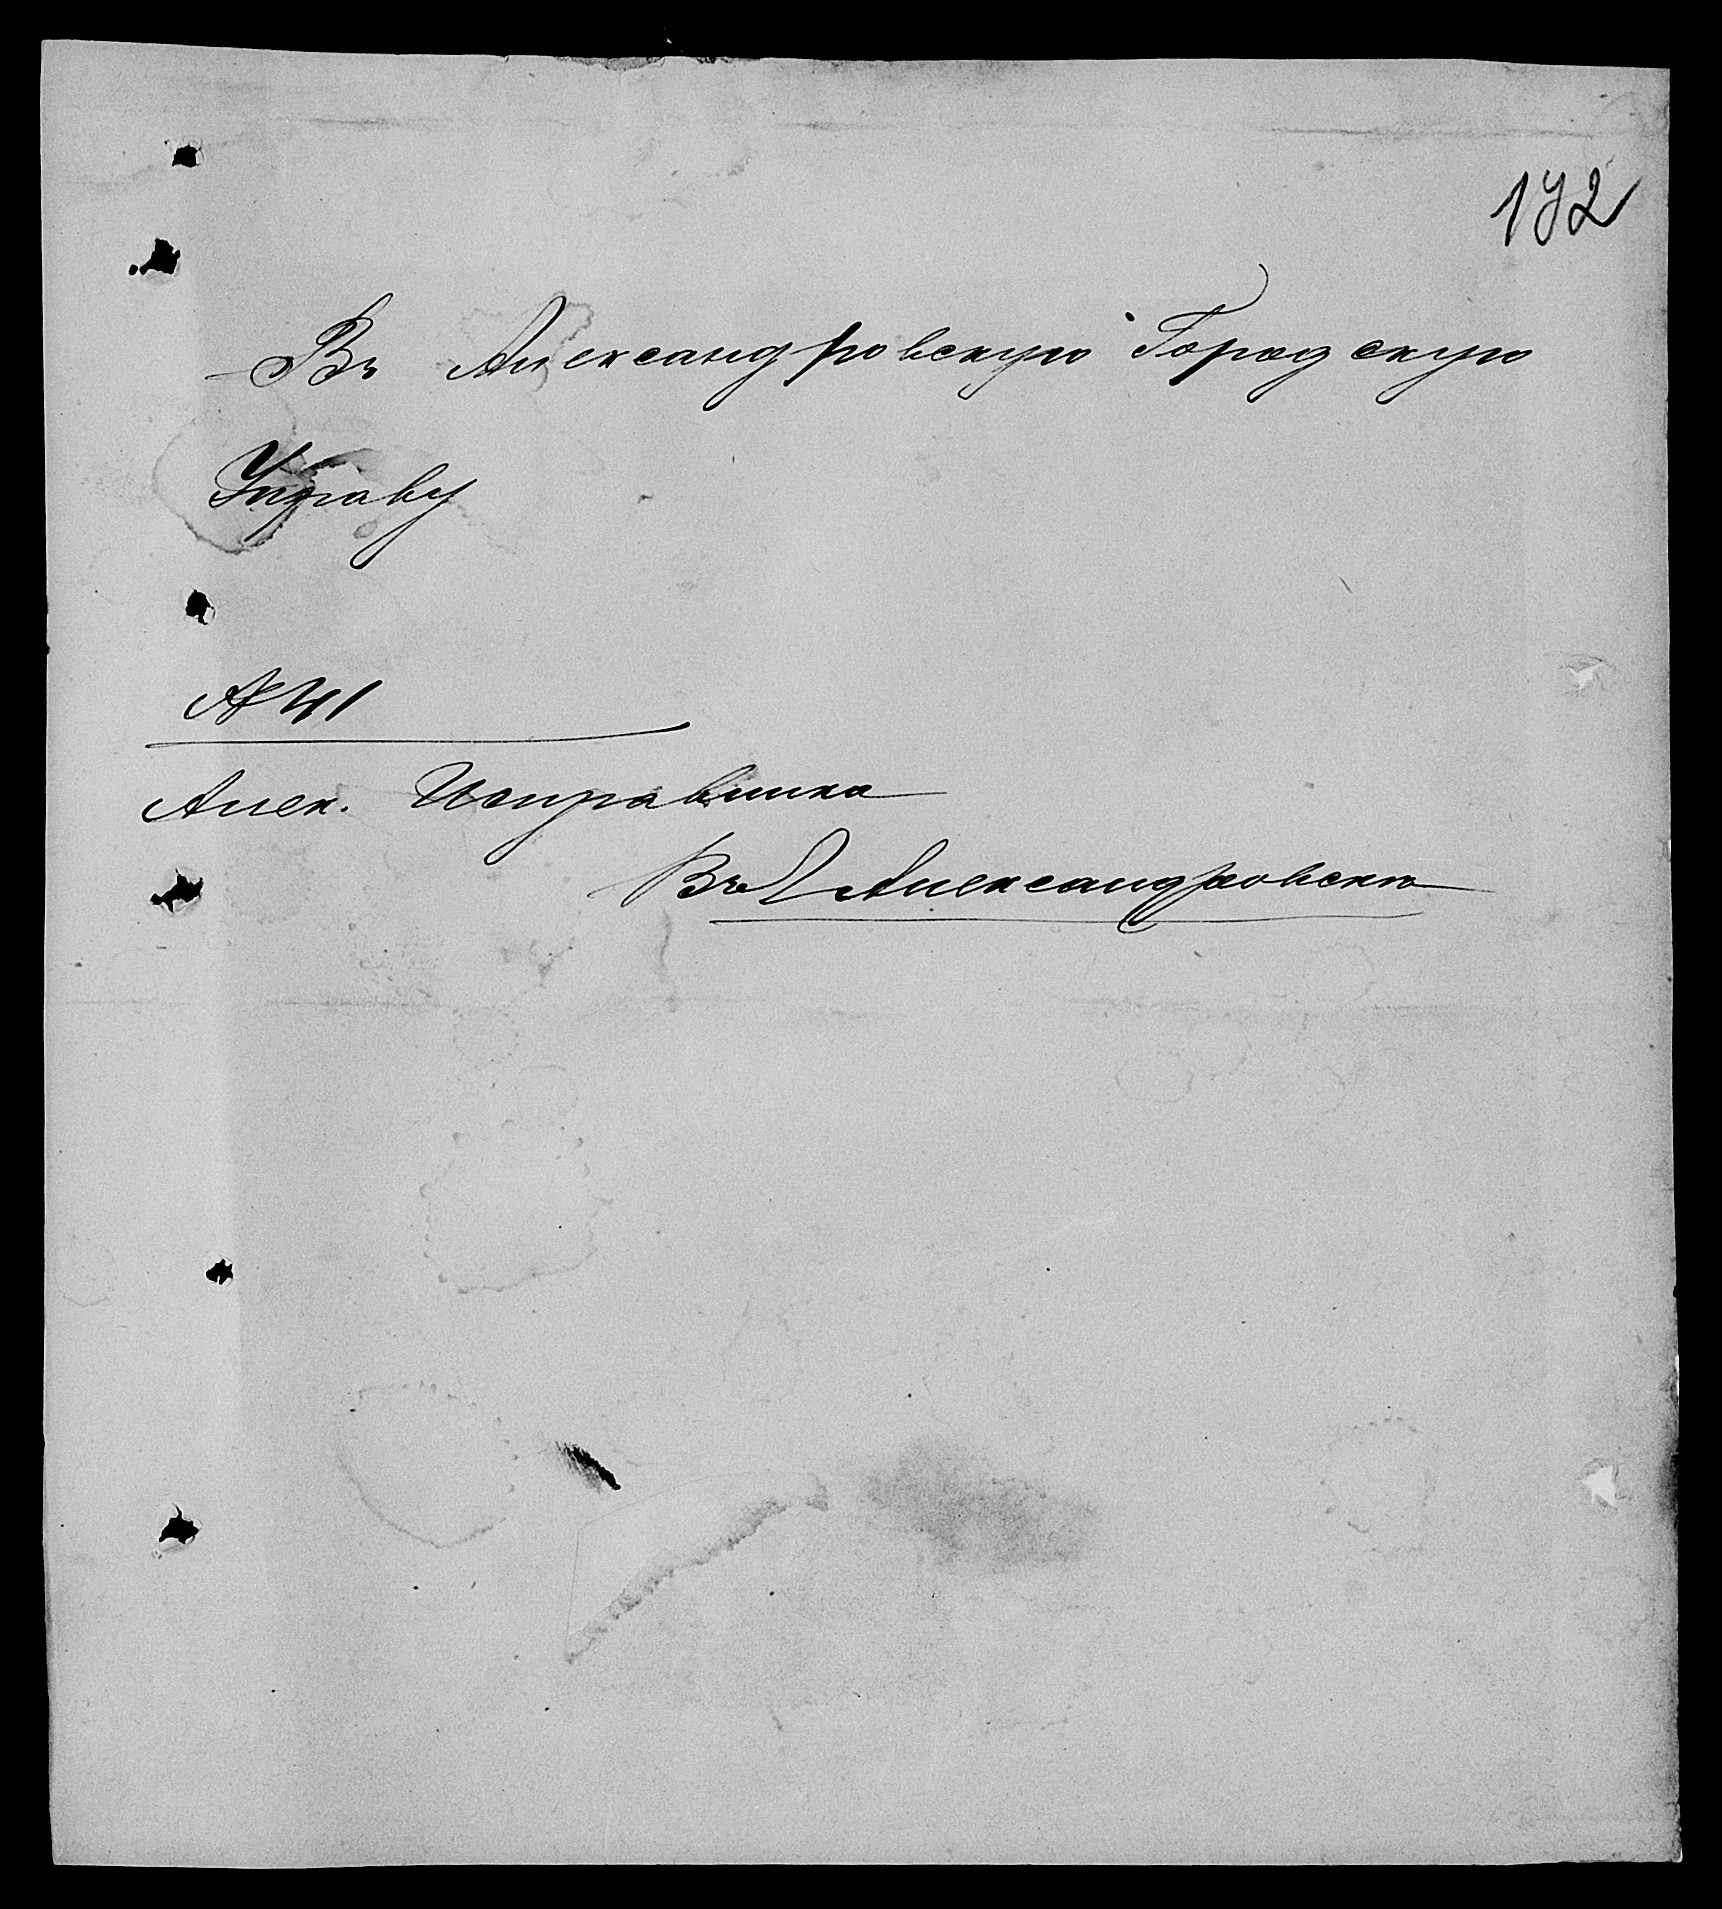 172
Въ Александровскую Городскую
Управу
№ 41
Алек. Исправника
Въ Александровскъ